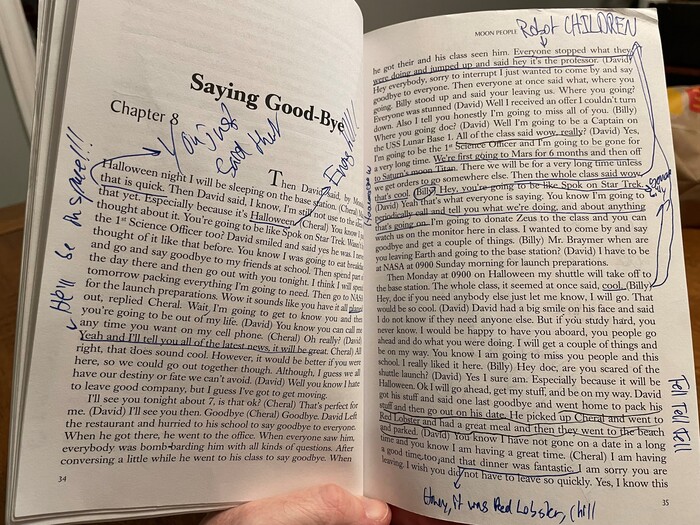 Saying Good-Bye
Chapter 8
You just
said that
Enough!!!!
He'll be in space!!!
Then David said, by Mon
Halloween night I will be sleeping on the base station. (Cheral)
that is quick. Then David said, I know, I'm still not use to the idea
that yet. Especially because it's Halloween. (Cheral) You know I
thought about it. You're going to be like Spok on Star Trek. Wasn't
the 1st Science Officer too? David smiled and said yes he was. I never
thought of it like that before. You know I was going to eat breakfast
and go and say goodbye to my friends at school. Then spend part
the day there and then go out with you tonight. I think I will spend
tomorrow packing everything I'm going to need. Then go to NASA
for the launch preparations. Wow it sounds like you have it all plann
out, replied Cheral. Wait I'm going to get to know you and then
you're going to be out of my life. (David) You know you can call me
any time you want on my cell phone. (Cheral) Oh really? (David)
Yeah and I'll tell you all of the latest news, it will be great. Cheral) All
right, that does sound cool. However, it would be better if you were
here, so we could go out together though. Although, I guess we all
have our destiny or fate we can't avoid. (David) Well you know I hate
to leave good company, but I guess I've got to get moving.
I'll see you tonight about 7, is that ok? (Cheral) That's perfect for
me. (David) I'll see you then. Goodbye (Cheral) Goodbye. David Left
the restaurant and hurried to his school to say goodbye to everyone.
When he got there, he went to the office. When everyone saw him,
everybody was bombarding him with all kinds of questions. After
conversing a little while he went to his class to say goodbye. When
34
MOON PEOPLE
Robot CHILDREN
he got their and his class seen him. Everyone stopped what they
were doing and jumped up and said hey it's the professor. (David)
Hey everybody, sorry to interrupt I just wanted to come by and say
goodbye to everyone. Then everyone at once said what, where you
going. Billy stood up and said your leaving us. Where you going?
Everyone was stunned (David) Well I received an offer I couldn't turn
down. Also I tell you honestly I'm going to miss all of you. (Billy)
Where you going doc? (David) Well I'm going to be a Captain on
the USS Lunar Base 1. All of the class said wow, really? (David) Yes,
I'm going to be the 1st Science Officer and I'm going to be gone for
a very long time. We're first going to Mars for 6 months and then off
to Saturn's moon Titan. There we will be for a very long time unless
we get orders to go somewhere else. Then the whole class said wow
that's cool. (Billy) Hey, you're going to be like Spok on Star Trek.
(David) Yeah that's what everyone is saying. You know I'm going to
periodically call and tell you what we're doing, and about anything
that's going on. I'm going to donate Zeus to the class and you can
watch us on the monitor here in class. I wanted to come by and say
goodbye and get a couple of things. (Billy) Mr. Braymer when are
you leaving Earth and going to the base station? (David) I have to be
at NASA at 0900 Sunday morning for launch preparations.
Then Monday at 0900 on Halloween my shuttle will take off to
the base station. The whole class, it seemed at once said, cool. (Billy)
Hey, doc if you need anybody else just let me know, I will go. That
would be so cool. (David) David had a big smile on his face and said
I do not know if they need anyone else. But if you study hard, you
never know. I would be happy to have you aboard, you people go
ahead and do what you were doing. I will get a couple of things and
be on my way. You know I am going to miss you people and this
school. I really liked it here. (Billy) Hey doc, are you scared of the
shuttle launch? (David) Yes I sure am. Especially because it will be
Halloween. Ok I will go ahead, get my stuff, and be on my way. David
got his stuff and said one last goodbye and went home to pack his
stuff and then go out on his date. He picked up Cheral and went to
Red Lobster and had a great meal and then they went to the beach
and parked. (David) You know I have not gone on a date in a long
time and you know I am having a great time. (Cheral) I am having
a good time, too, and that dinner was fantastic. I am sorry you are
leaving. I wish you did not have to leave so quickly. Yes, I know this
35
Tell Tell Tell
Honey, it was Red Lobster, chill